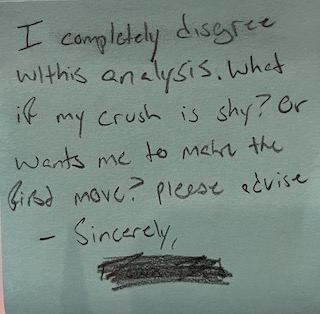 I completely disgree
w/this analysis. What
if my crush is shy? Or
wants me to make the
first move? please advise
- Sincerely,